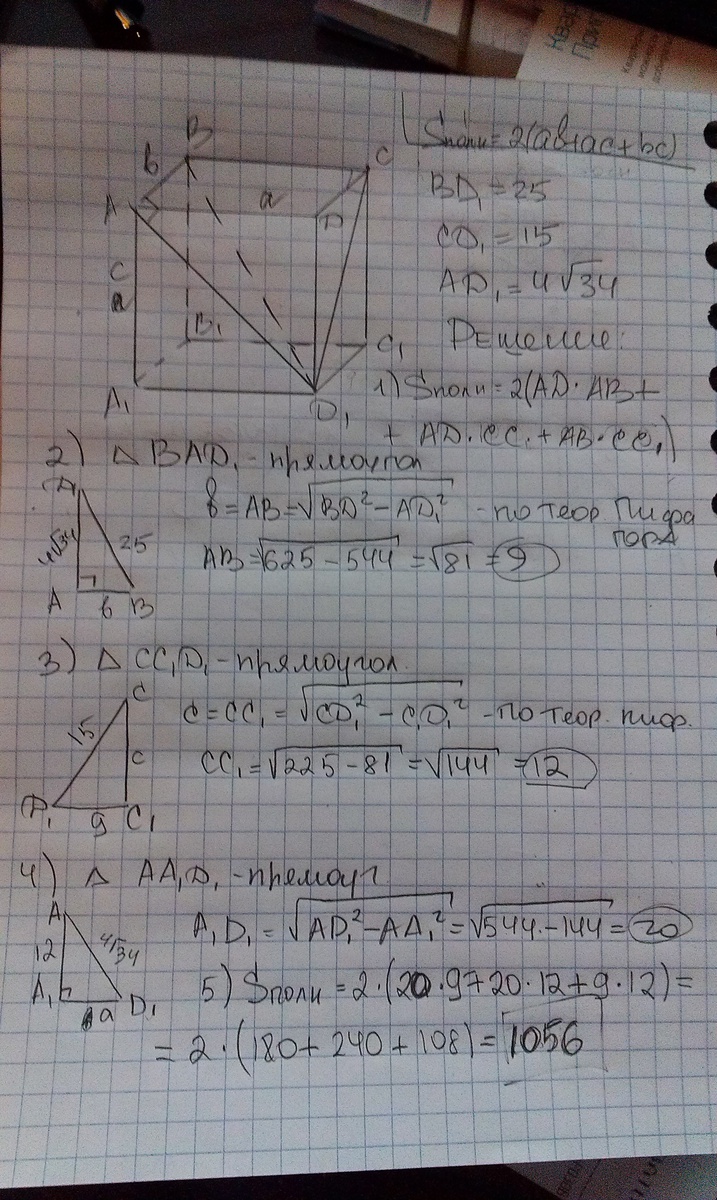 Sполн = 2(ab+ac+bc)
BD₁ = 25
CD₁ = 15
AD₁ = 4√34
Решение:
1) Sполн = 2(AD·AB +
+ AD·CC₁ + AB·CC₁)
B
b
C
A
a
D
c
B₁
C₁
A₁
D₁
2) △ BAD₁ - прямоугол
b = AB = √(BD² - AD₁²) - по теор. Пифа
гора
AB = √(625 - 544) = √81 = 9
D₁
4√34
25
A
b
B
3) △ CC₁D₁ - прямоугол.
c = CC₁ = √(CD₁² - C₁D₁²) - по теор. пиф.
CC₁ = √(225 - 81) = √144 = 12
C
15
c
D₁
9
C₁
4) △ AA₁D₁ - прямоуг
A₁D₁ = √(AD₁² - AA₁²) = √(544 - 144) = 20
A
12
4√34
A₁
a
D₁
5) Sполн = 2·(20·9+20·12+9·12) =
= 2·(180 + 240 + 108) = 1056
Ква
При